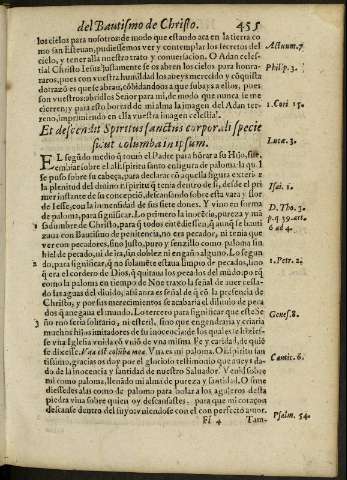 del Bautismo de Christo. 455
los cielos para nosotros: de modo que estando aca en la tierra co
mo san Esteuan, pudiessemos ver y contemplar los secretos del
cielo, y tener alla nuestro trato y conuersacion. O Adan celes-
tial Christo Iesus, justamente se os abren los cielos para honra-
ros, pues con vuestra humildad los aueys merecido y cōquista
do: razō es que se abran, cōbidandoos a que subays a ellos, pues
son vuestros: abridlos Señor para mi, de modo que nunca se me
cierren, y para esto borrad de mi alma la imagen del Adan ter-
reno, imprimiendo en ella vuestra imagen celestial.
Actuum. 7
Philip. 3.
1. Cori 15.
Et descendit Spiritus sanctus corporali specie
sicut columba in ipsum.
Lucæ. 3.
EL segūdo medio q̄ tomó el Padre para hōrar a su Hijo, fue,
embiar sobre el al Espiritu santo en figura de paloma: la qual
se puso sobre su cabeça, para declarar cō aquella figura exterior
la plenitud del diuino espiritu q̄ tenia dentro de si, desde el pri
mer instante de su concepciō, descansando sobre esta vara y flor
de Iesse, con la inmensidad de sus siete dones. Y vino en forma
de paloma, para significar. Lo primero la inocēcia, pureza y mā
sadumbre de Christo, para q̄ todos entēdiessē, q̄ aunq̄ se bauti
zaua con Bautismo de penitencia, no era pecador, ni tenia que
ver con pecadores, sino justo, puro y senzillo como paloma sin
hiel de pecado, ni de ira, sin doblez ni engaño alguno. Lo segun
do, para significar, q̄ no solamēte estaua limpio de pecados, sino
q̄ era el cordero de Dios, q̄ quitaua los pecados del mūdo: porq̄
como la paloma en tiempo de Noe traxo la señal de auer cessa-
do las aguas del diluuio, assi aora es señal de q̄ cō la presencia de
Christo, y por sus merecimientos se acabaria el diluuio de peca
dos q̄ anegaua el mundo. Lo tercero para significar que este bē
no no seria solitario, ni esteril, sino que engendraria y criaria
muchos hijos imitadores de su inocencia: de los quales se hiziesse
vna Iglesia vnida cō vniō de vna misma Fe y caridad, de quiē
se dixesse. Vna est columba mea. Vna es mi paloma. O Espiritu san
tissimo, gracias os doy por el glorioso testimonio que aueys da-
do de la inocencia y santidad de nuestro Saluador. Venid sobre
mi como paloma, llenādo mi alma de pureza y santidad. O si me
diessedes alas como de paloma para bolar a los agujeros desta
piedra viua sobre quien oy descansastes: para que mi coraçon
descanse dentro del suyo, vniendose con el con perfecto amor.
2
3
Isai. 1.
D. Tho. 3.
p. q. 39. art.
6 ad 4.
1. Petr. 2.
Genes. 8.
Cantic. 6.
Psalm. 54.
Ff 4 Tam-